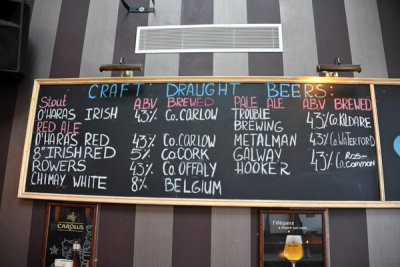 CRAFT DRAUGHT BEERS:
Stout ABV BREWED
O'HARAS IRISH 43% Co. CARLOW
RED ALE
O'HARAS RED 43% Co. CARLOW
8° IRISH RED 5% Co. CORK
BOWERS 43% Co. OFFALY
CHIMAY WHITE 8% BELGIUM
PALE ALE ABV BREWED
TROUBLE BREWING 43% Co. KILDARE
METALMAN 43% Co. WATERFORD
GALWAY HOOKER 43% Co. Ros-Common
CAROLUS
l'élégance